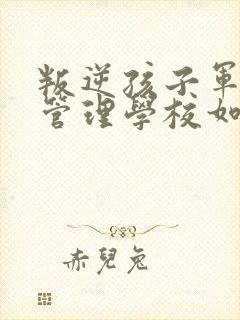 叛逆孩子軍
管理學校如
赤兒兔